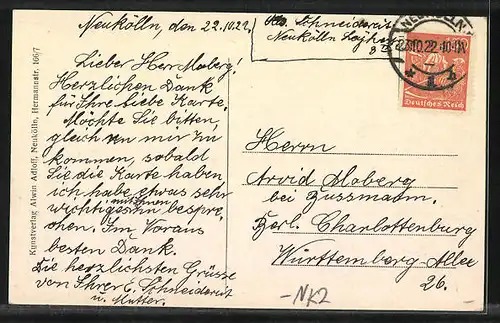 Neukölln, den 22.10.22.
Abs. Schneidereit
Neukölln
Lieber Herr Moberg!
Herzlichen Dank
für Ihre liebe Karte.
Möchte Sie bitten,
gleich von mir zu
kommen, sobald
Sie die Karte haben
ich habe etwas sehr
wichtiges mit Ihnen bespre-
chen. Im Voraus
besten Dank.
Die herzlichsten Grüsse
von Ihrer E. Schneidereit
u. Mutter.
Kunstverlag Alwin Adloff, Neukölln, Hermannstr. 166/7
23.10.22.
Deutsches Reich
Herrn
Arvid Moberg
bei Bussmann.
Berl. Charlottenburg
Württemberg-Allee
26.
-NK2